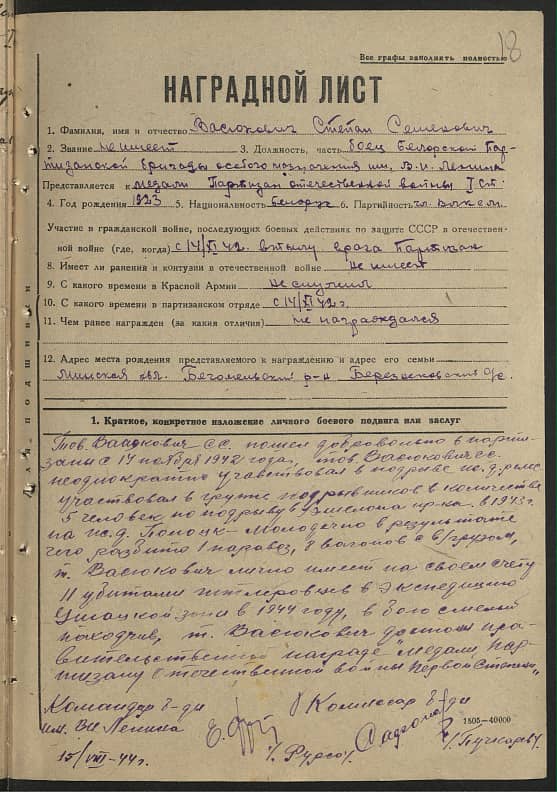 18
Все графы заполнять полностью
НАГРАДНОЙ ЛИСТ
1. Фамилия, имя и отчество Васюкович Степан Семенович
2. Звание не имеет 3. Должность, часть боец Белорской Пар-
тизанской бригады особого назначения им. В.И. Ленина
Представляется к медали Партизан отечественной войны I ст.
4. Год рождения 1923 5. Национальность белорус 6. Партийность чл. ВЛКСМ
Участие в гражданской войне, последующих боевых действиях по защите СССР в отечествен-
ной войне (где, когда) с 14/XI 42. в тылу врага Партизан
8. Имеет ли ранения и контузии в отечественной войне не имеет
9. С какого времени в Красной Армии не служил
10. С какого времени в партизанском отряде с 14/XI 42 г.
11. Чем ранее награжден (за какия отличия) не награждался
12. Адрес места рождения представляемого к награждению и адрес его семьи
Минская обл. Бегомельский р-н
Для подшивки
1. Краткое, конкретное изложение личного боевого подвига или заслуг
Тов. Васюкович С.С. пошел добровольно в парти-
заны с 14 ноября 1942 года, тов. Васюкович С.С.
неоднократно участвовал в подрыве ж.д. рельс
участвовал в группе подрывников в количестве
5 человек по подрыву эшелона пр-ка. в 1943 г.
на ж.д. Полоцк-Молодечно в результате
чего разбито 1 паравоз, 8 вагонов с б/грузом,
т. Васюкович лично имеет на своем счету
11 убитыми гитлеровцев в экспедицию
Ушацкой зоны в 1944 году, в бою смелый
находчив, т. Васюкович достоин пра-
вительственной награде "Медали Пар-
тизану Отечественной войны Первой Степени"
Командир б-ды
им. ВИ Ленина
Комиссар б-ды
1505—40000
15/VIII-44 г.
/Фурсо/